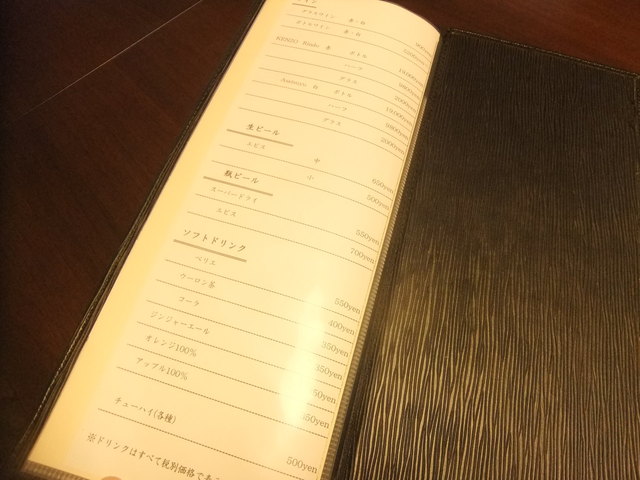 グラスワイン 赤・白 900yen
ボトルワイン 赤・白
KENZO Rindo 赤 ボトル
ハーフ
グラス 2000yen
Asatsuyu 白 ボトル
ハーフ
グラス 2000yen
生ビール
エビス 中 650yen
小 500yen
瓶ビール
スーパードライ 550yen
エビス 700yen
ソフトドリンク
ペリエ 550yen
ウーロン茶 400yen
コーラ 350yen
ジンジャーエール
オレンジ100%
アップル100%
チューハイ(各種) 500yen
※ドリンクはすべて税別価格であ